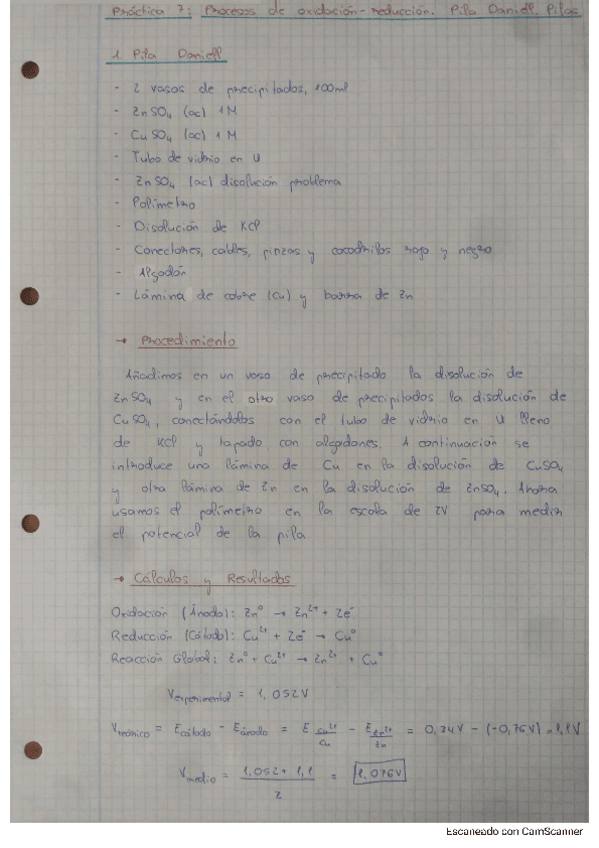 Práctica 7: Procesos de oxidación-reducción. Pila Daniell. Pilas
1. Pila Daniell
- 2 vasos de precipitados, 100ml
- ZnSO₄ (ac) 1M
- CuSO₄ (ac) 1M
- Tubo de vidrio en U
- ZnSO₄ (ac) disolución problema
- Polímetro
- Disolución de KCl
- Conectores, cables, pinzas y cocodrilos rojo y negro
- Algodón
- Lámina de cobre (Cu) y barra de Zn
→ Procedimiento
Añadimos en un vaso de precipitado la disolución de
ZnSO₄ y en el otro vaso de precipitados la disolución de
CuSO₄, conectándolos con el tubo de vidrio en U lleno
de KCl y tapado con algodones. A continuación se
introduce una lámina de Cu en la disolución de CuSO₄
y otra lámina de Zn en la disolución de ZnSO₄. Ahora
usamos el polímetro en la escala de 2V para medir
el potencial de la pila
→ Cálculos y Resultados
Oxidación (Ánodo): Zn⁰ → Zn²⁺ + 2e⁻
Reducción (Cátodo): Cu²⁺ + 2e⁻ → Cu⁰
Reacción Global: Zn⁰ + Cu²⁺ → Zn²⁺ + Cu⁰
Vexperimental = 1,052V
Vteórico = Ecátodo - Eánodo = E Cu²⁺/Cu - E Zn²⁺/Zn = 0,34V - (-0,76V) = 1,1V
Vmedio = (1,052 + 1,1)/2 = 1,076V
Escaneado con CamScanner